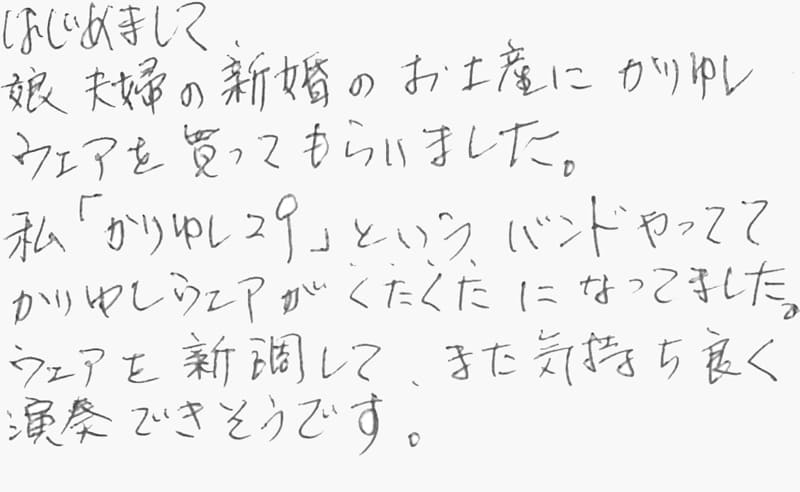 はじめまして
娘夫婦の新婚のお土産にかりゆし
ウェアを買ってもらいました。
私「かりゆし29」という バンドやってて
かりゆしウェアがくたくたになってました。
ウェアを新調して、また気持ち良く
演奏できそうです。